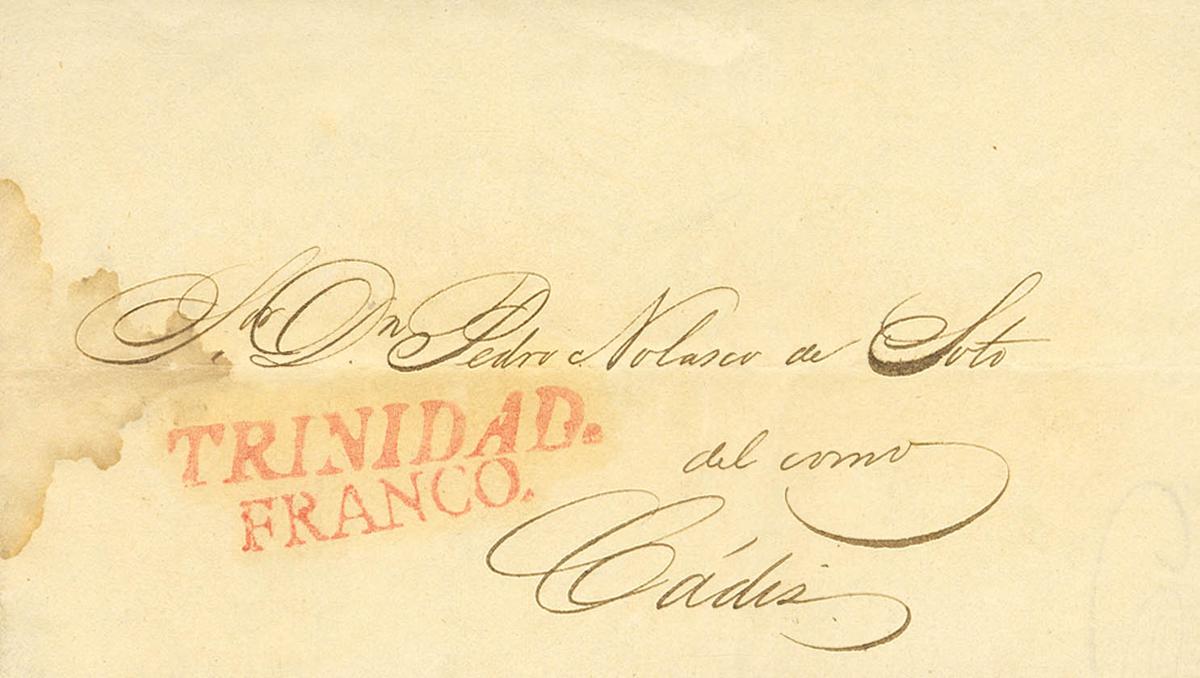 S.ᵒʳ D.ⁿ Pedro Nolasco de Soto
TRINIDAD.
FRANCO.
del como
Cádis